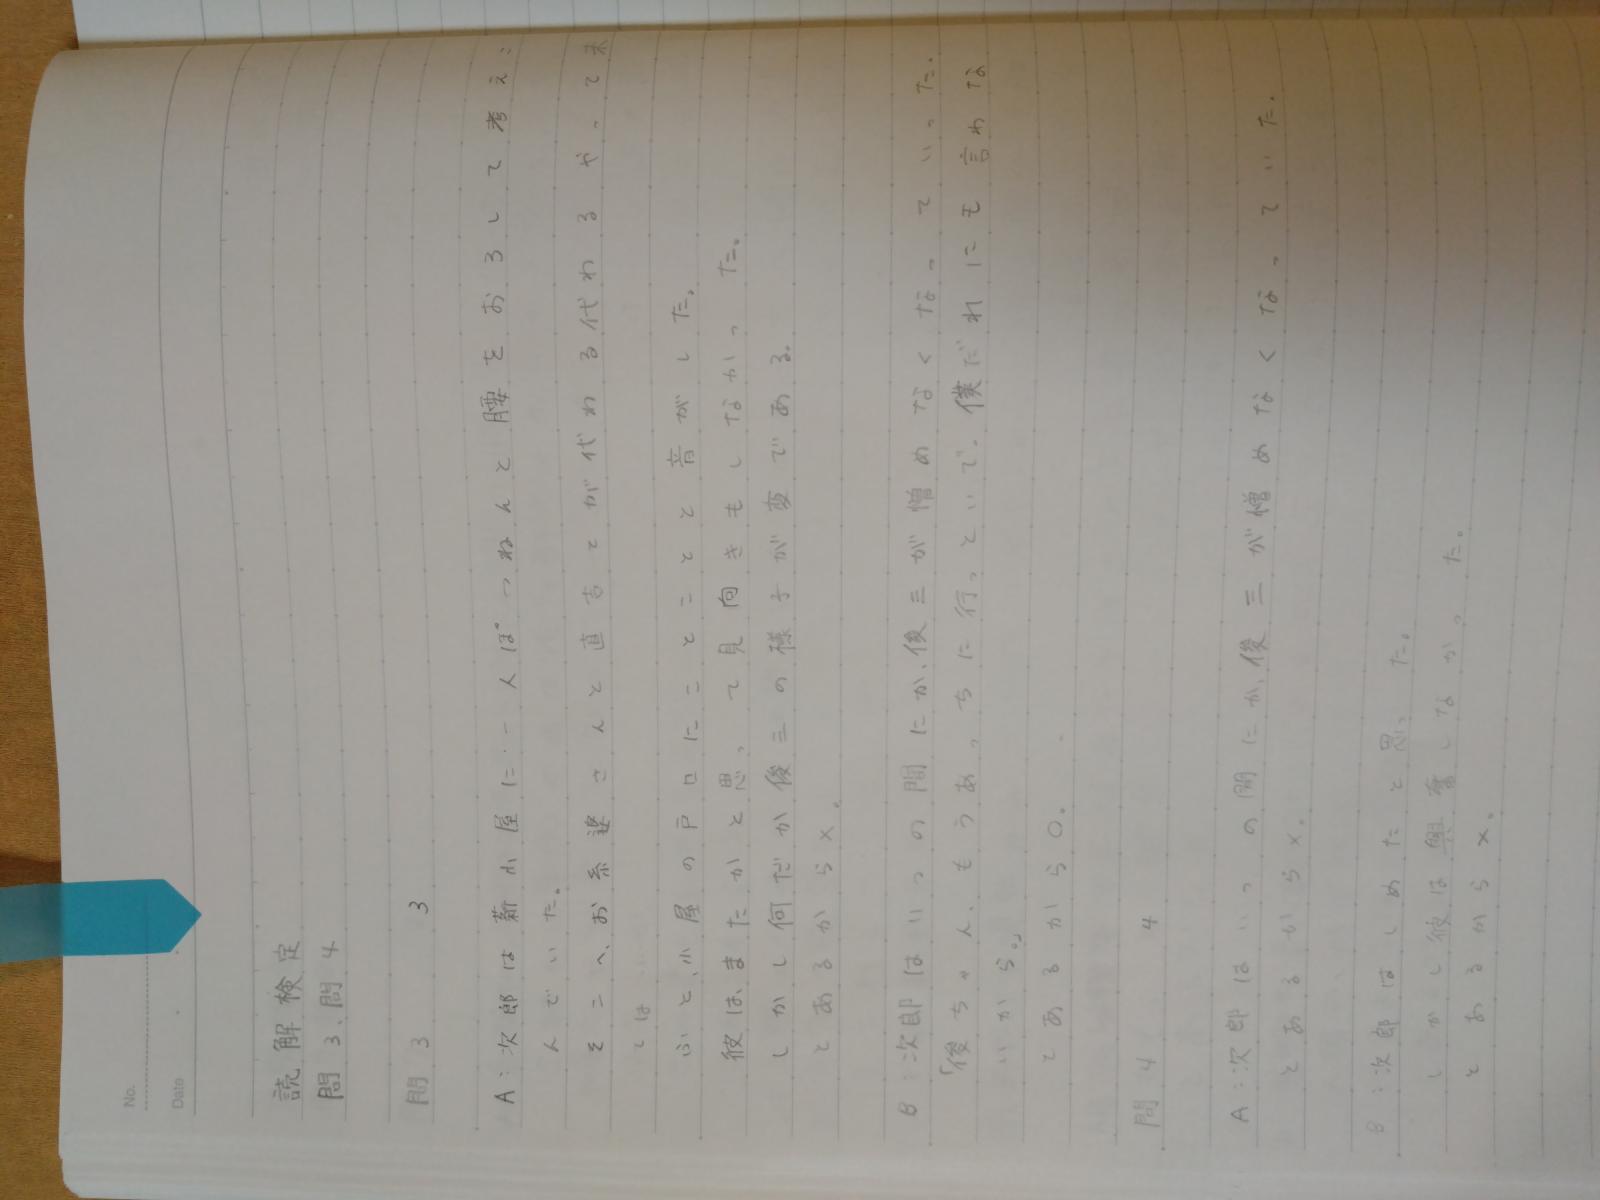 No.
Date
読解検定
問3、問4
問3 3
A:次郎は薪小屋に、一人ぽつねんと腰をおろして考え
んでいた。
そこへ、お糸婆さんと直吉とが代わる代わるやって来
ては
ふと、小屋の戸口にことことと音がした。
彼は、またかと思って見向きもしなかった。
しかし何だか俊三の様子が変である。
とあるから×。
B:次郎はいつの間にか、俊三が憎めなくなっていった。
「俊ちゃん、もうあっちに行っといで。僕だれにも言わな
いから。」
とあるから○。
問4 4
A:次郎はいつの間にか、俊三が憎めなくなっていた。
とあるから×。
B:次郎はしめたと思った。
しかし彼は興奮しなかった。
とあるから×。